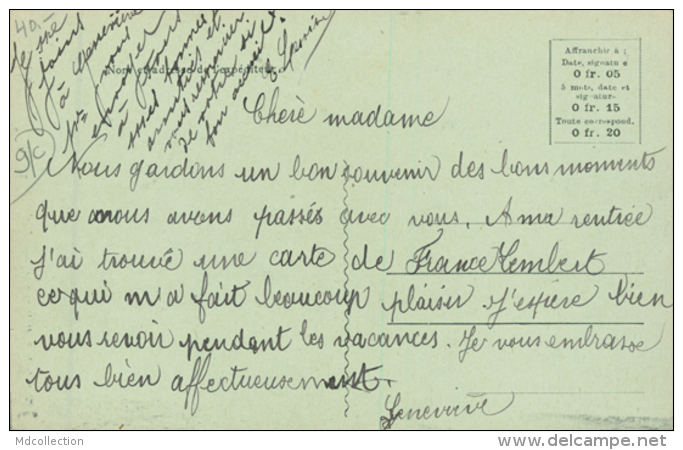 40.-
Je me
joins
à Geneviève
pour vous
envoyer
à tous
nos
amitiés et
vous remercier
de votre si
bon accueil.
Nom et adresse de l'expéditeur
9/c
Affranchir à :
Date, signature
0 fr. 05
5 mots, date et
signature
0 fr. 15
Toute correspond.
0 fr. 20
Cherè madame
Nous gardons un bon souvenir des bons moments
que nous avons passés avec vous. A ma rentrée
j'ai trouvé une carte de France Lembert
ce qui m'a fait beaucoup plaisir. J'espère bien
vous revoir pendant les vacances. Je vous embrasse
tous bien affectueusement.
Geneviève
Mdcollection
www.delcampe.net